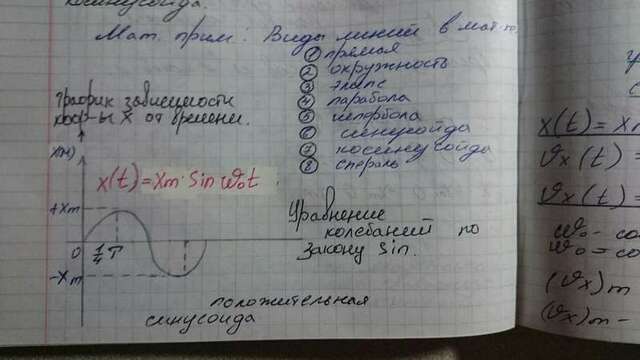 косинусоида.
Мат. прим: Виды линий в мат-ке
① прямая
② окружность
③ элипс
④ парабола
⑤ гипербола
⑥ синусоида
⑦ косинусоида
⑧ спераль
График зависимости
коор-ы X от времени.
x(м)
x(t)=Xm·Sin ω₀t
+Xm
0
1/4 T
-Xm
Уравнение
колебаний по
закону sin.
положительная
синусоида
x(t)= Xm
ϑx(t)=
ϑx(t)=
ω₀ -
ω₀ =
(ϑx)m
(ϑx)m -